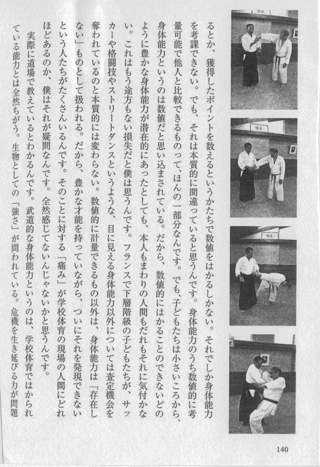 るとか、獲得したポイントを数えるというかたちで数値をはかるしかない。それでしか身体能力
を考課できない。でも、それは本質的に間違っていると思うんです。身体能力のうち数値的に考
量可能で他人と比較できるものって、ほんの一部分なんです。でも、子どもたちは小さいころから、
身体能力というのは数値だと思い込まされている。だから、数値的にはかることのできないどの
ように豊かな身体能力が潜在的にあったとしても、本人もまわりの人間もだれもそれに気付かな
い。これはもう途方もない損失だと僕は思うんです。フランスで下層階級の子どもたちが、サッ
カーや格闘技やストリートダンスというような、目に見える身体能力以外については査定機会を
奪われているのと本質的には変わらない。数値的に計量できるもの以外は、身体能力は「存在し
ない」ものとして扱われる。だから、豊かな才能を持っていながら、ついにそれを発現できない
という人たちがたくさんいるんです。そのことに対する「痛み」が学校体育の現場の人間にどれ
ほどあるのか、僕はそれが疑問なんです。全然感じてないんじゃないかと思うんです。
実際に道場で教えているとわかるんです。武道的な身体能力というのは、学校体育ではかられ
ている能力とは全然ちがう。生物としての「強さ」が問われている。危機を生き延びる力が問題
140